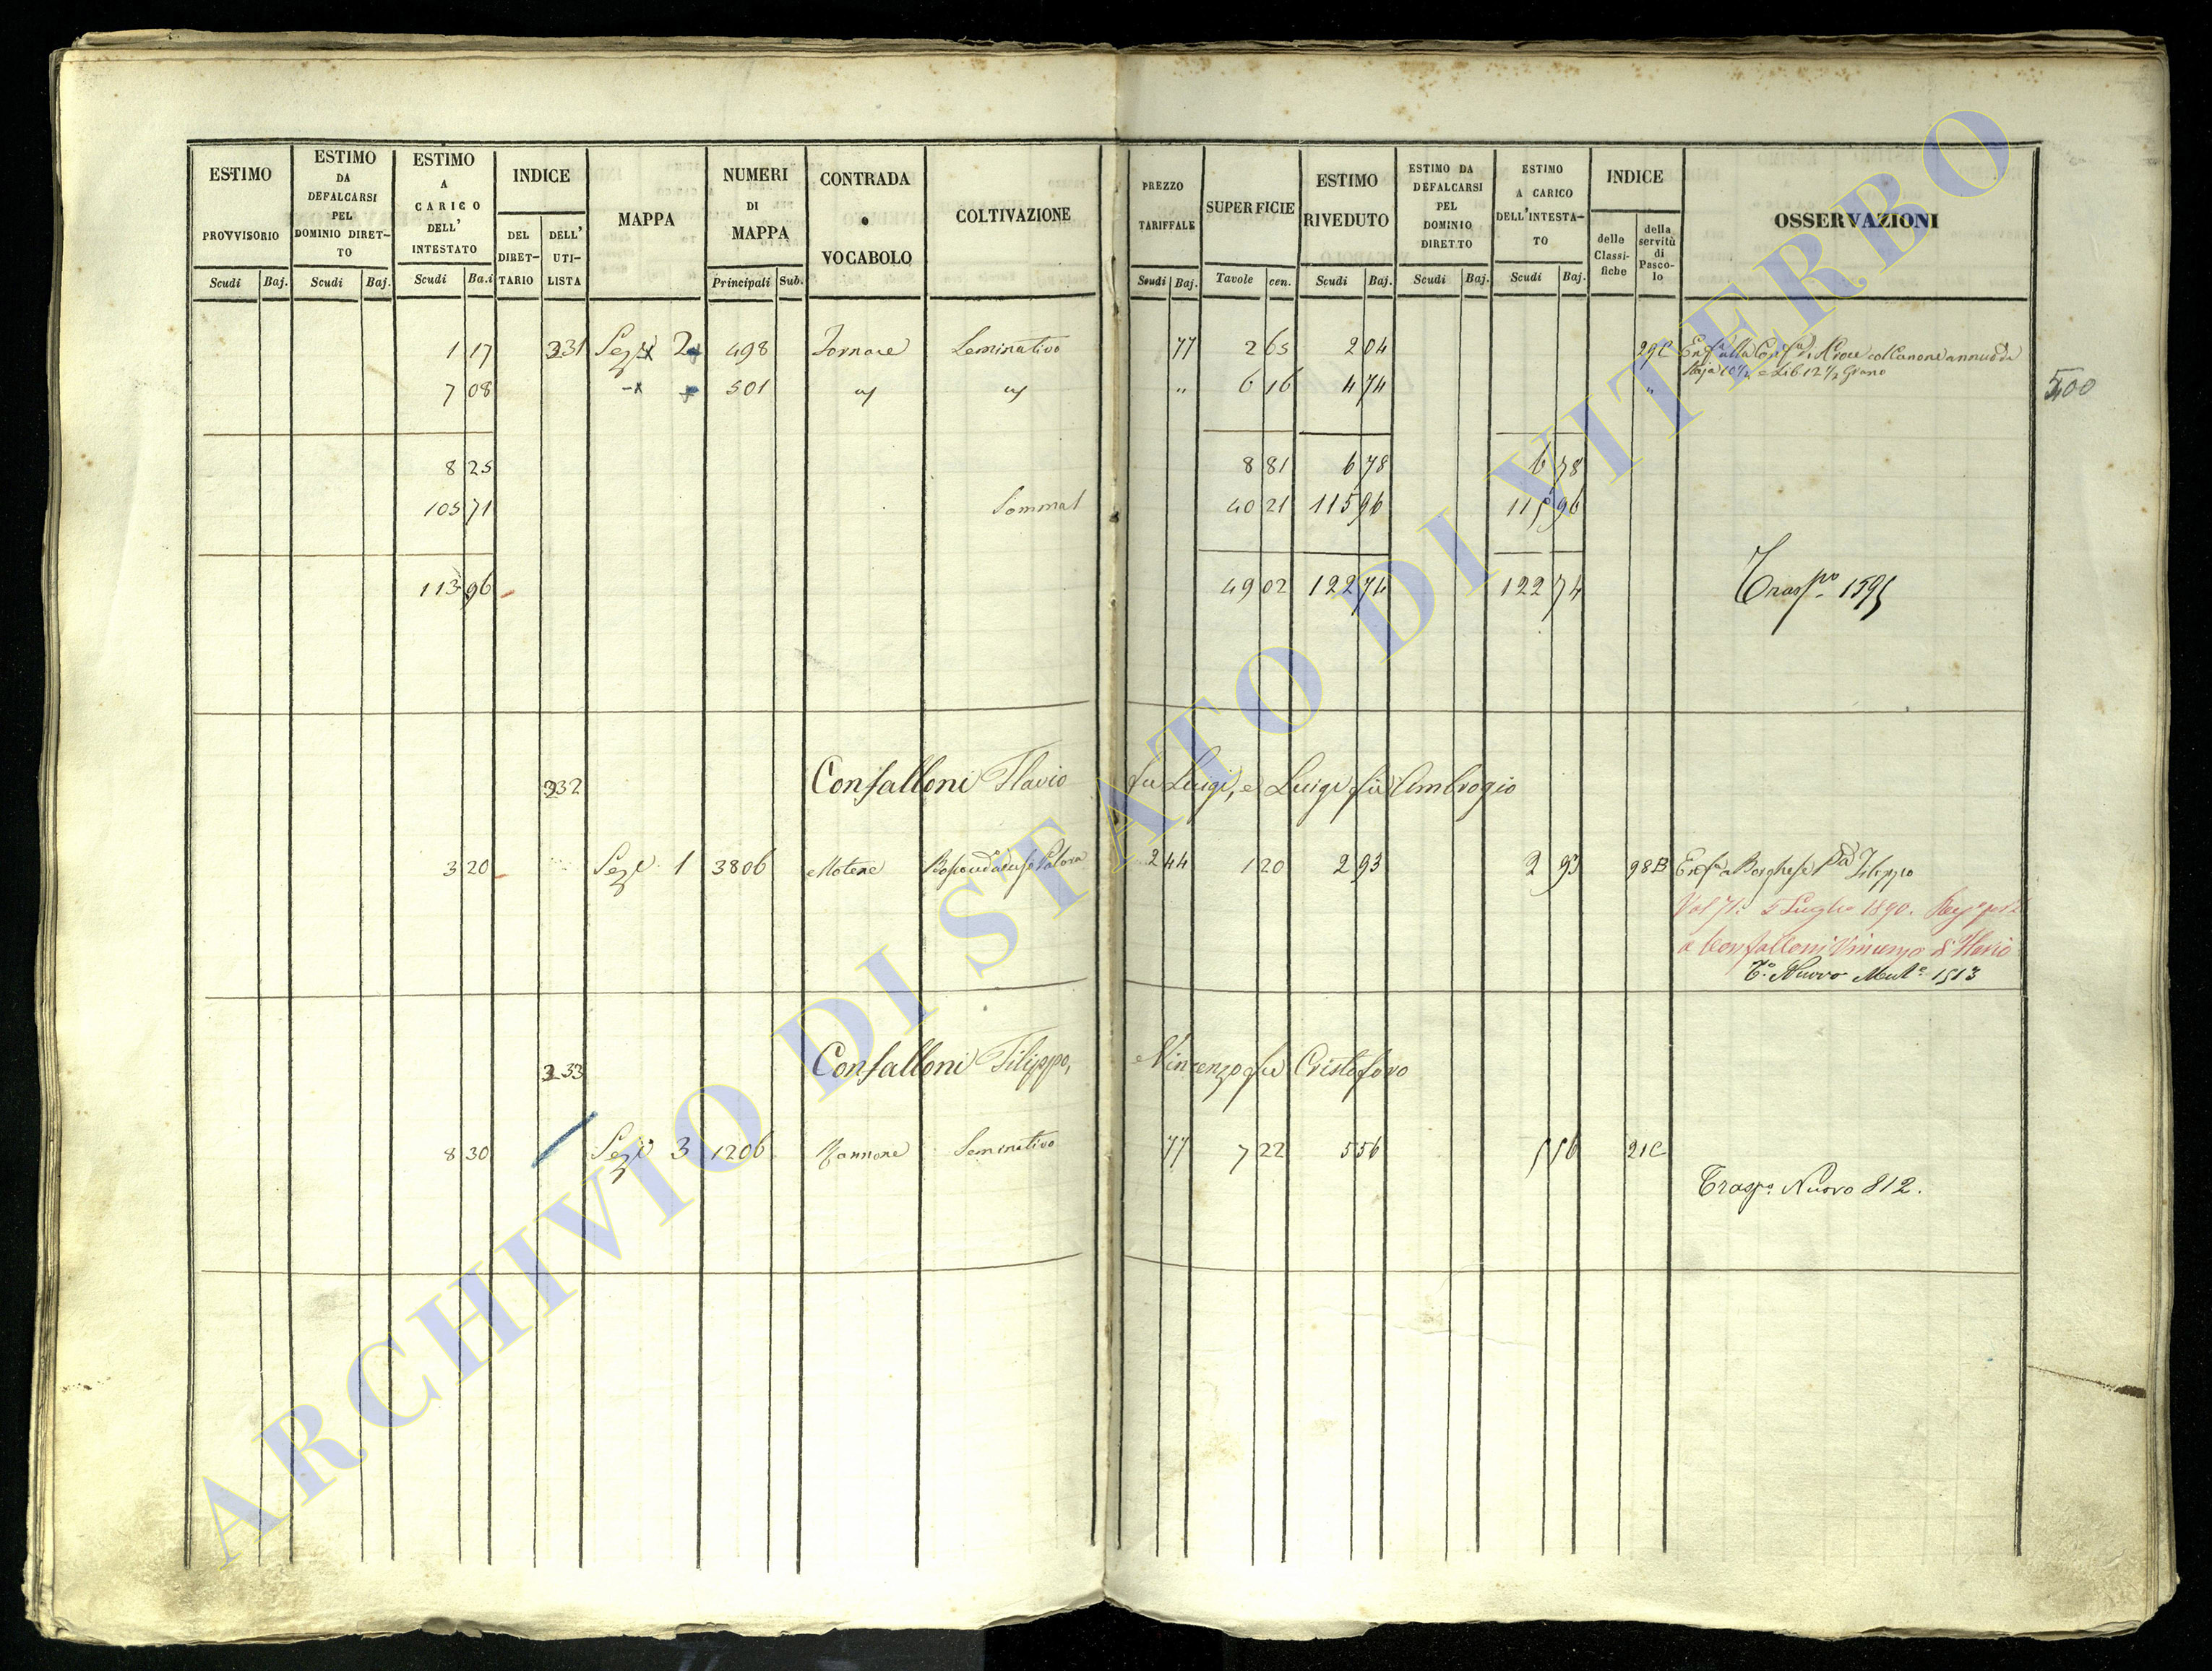 ESTIMO PROVVISORIO Scudi Baj.
ESTIMO DA DEFALCARSI PEL DOMINIO DIRET-TO Scudi Baj.
ESTIMO A CARICO DELL' INTESTATO Scudi Ba.i
INDICE DEL DIRET-TARIO DELL' UTI-LISTA
MAPPA
NUMERI DI MAPPA Principali Sub.
CONTRADA o VOCABOLO
COLTIVAZIONE
PREZZO TARIFFALE Scudi Baj.
SUPERFICIE Tavole cen.
ESTIMO RIVEDUTO Scudi Baj.
ESTIMO DA DEFALCARSI PEL DOMINIO DIRETTO Scudi Baj.
ESTIMO A CARICO DELL'INTESTA-TO Scudi Baj.
INDICE delle Classi-fiche della servitù di Pasco-lo
OSSERVAZIONI
1 17 331 Sez 2 498 Fornace Seminativo 77 2 65 2 04 29C
7 08 501 " 6 16 4 74 "
500
8 25 8 81 6 78 6 78
105 71 Sommat 40 21 115 96 115 96
113 96 49 02 122 74 122 74 Trasp.o 1595
332 Confalloni Flavio fu Luigi, e Luigi fu Ambrogio
3 20 Sez 1 3806 2 44 1 20 2 93 2 93 98B Enf.a a Borghese Filippo
5 Luglio 1890.
a Confalloni Vincenzo di Flavio
T.o Nuovo 1513
333 Confalloni Filippo, e Vincenzo fu Cristoforo
8 30 Sez 3 1206 Seminativo 77 7 22 5 56 5 56 21C
Trasp.o Nuovo 812.
ARCHIVIO DI STATO DI VITERBO